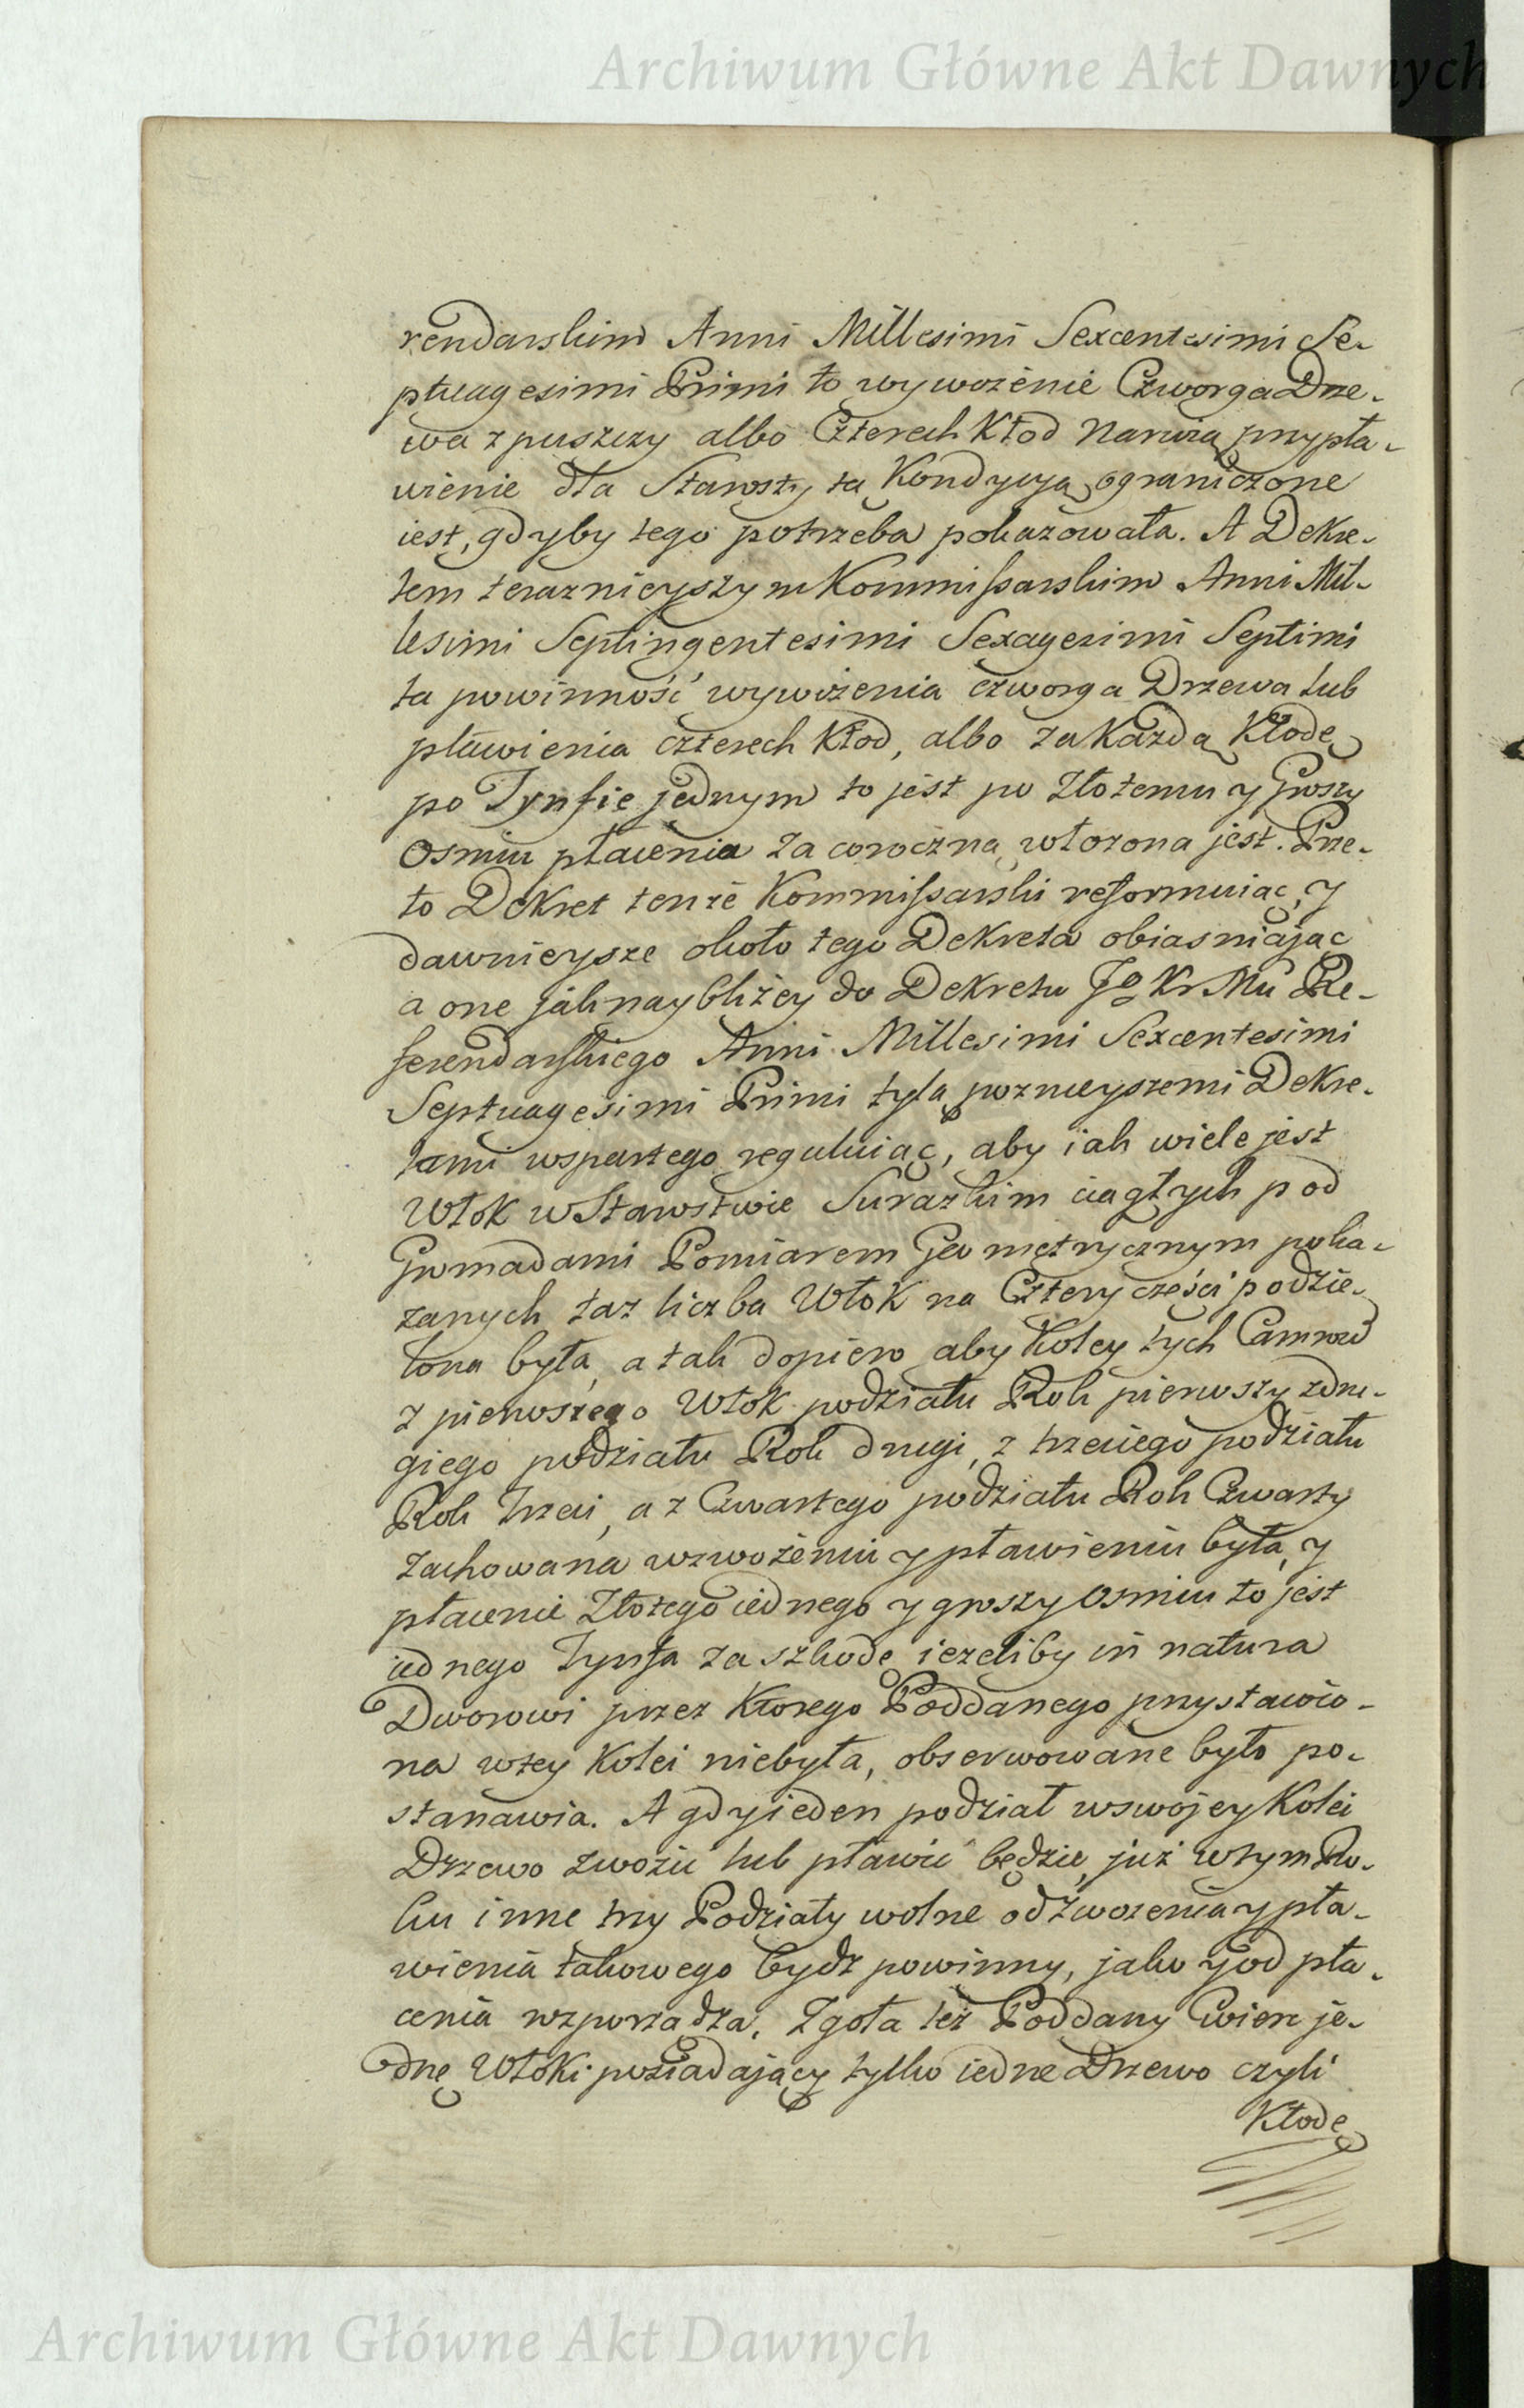 Archiwum Główne Akt Dawnych
rendarskim Anni Millesimi Sexcentesimi Se-
ptuagesimi Primi to wywożenie Czworga Drze-
wa z puszczy albo Czterech Kłod Narwią przypła-
wienie dla Starosty tą Kondycyą ograniczone
iest, gdyby tego potrzeba pokazowała. A Dekre-
tem teraznieyszym Kommissarskim Anni Mil-
lesimi Septingentesimi Sexagesimi Septimi
ta powinność wywożenia czworga Drzewa lub
pławienia czterech Kłod, albo za Każdą Kłodę
po Tynfie jednym to jest po Złotemu y Groszy
Osmiu płacenia za coroczną włożona jest. Prze-
to Dekret tenże Kommissarski reformuiąc, y
dawnieysze około tego Dekreta obiasniając
a one jak naybliżey do Dekretu Jo Kr Mci Re-
ferendarskiego Anni Millesimi Sexcentesimi
Septuagesimi Primi tylą poznieyszemi Dekre-
tami wspartego reguluiąc, aby iak wiele jest
Włok w Starostwie Surazkim ciągłych pod
Gromadami Pomiarem Geometrycznym poka-
zanych taż liczba Włok na Cztery części podzie-
lona była, a tak dopiero aby Koley tych
z pierwszego Włok podziału Rok pierwszy z dru-
giego podziału Rok drugi, z trzeciego podziału
Rok trzeci, a z Czwartego podziału Rok Czwarty
zachowana w zwożeniu y pławieniu była, y
płacenie Złotego iednego y groszy Osmiu to jest
iednego Tynfa za szkodę ieżeliby in natura
Dworowi przez Ktorego Poddanego przystawio-
na w tey Kolei niebyła, obserwowane było po-
stanawia. A gdy ieden podział w swojey Kolei
Drzewo zwozić lub pławić będzie, już w tym Ro-
ku inne trzy Podziały wolne od zwożenia y pła-
wienia takowego bydź powinny, jako y od pła-
cenia wzporządza. Zgoła też Poddany Cwierć je-
dnę Włoki posiadający tylko iedne Drzewo czyli
Kłodę
Archiwum Główne Akt Dawnych